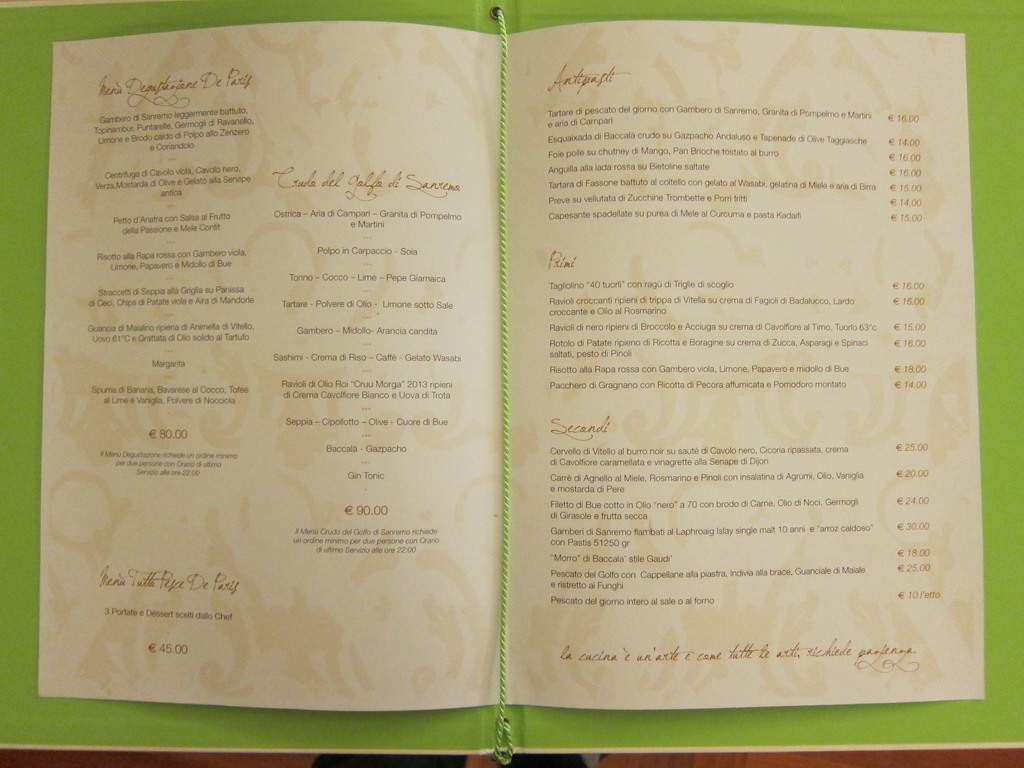 Menù Degustazione De Paris
Gambero di Sanremo leggermente battuto,
Topinambur, Puntarelle, Germogli di Ravanello,
Limone e Brodo caldo di Polpo allo Zenzero
e Coriandolo
...
Centrifuga di Cavolo viola, Cavolo nero,
Verza,Mostarda di Olive e Gelato alla Senape
antica
...
Petto d'Anatra con Salsa al Frutto
della Passione e Mele Confit
...
Risotto alla Rapa rossa con Gambero viola,
Limone, Papavero e Midollo di Bue
...
Straccetti di Seppia alla Griglia su Panissa
di Ceci, Chips di Patate viola e Aira di Mandorle
...
Guancia di Maialino ripiena di Animella di Vitello,
Uovo 61°C e Grattata di Olio solido al Tartufo
...
Margarita
...
Spuma di Banana, Bavarese al Cocco, Tofee
al Lime e Vaniglia, Polvere di Nocciola
€ 80.00
Il Menù Degustazione richiede un ordine minimo
per due persone con Orario di ultimo
Servizio alle ore 22:00
Menù Tutto Pesce De Paris
3 Portate e Dessert scelti dallo Chef
€ 45.00
Crudo del Golfo di Sanremo
Ostrica – Aria di Campari – Granita di Pompelmo
e Martini
...
Polpo in Carpaccio - Soia
...
Tonno – Cocco – Lime – Pepe Giamaica
...
Tartare - Polvere di Olio - Limone sotto Sale
...
Gambero – Midollo- Arancia candita
...
Sashimi - Crema di Riso – Caffè - Gelato Wasabi
...
Ravioli di Olio Roi "Cruu Morga" 2013 ripieni
di Crema Cavolfiore Bianco e Uova di Trota
...
Seppia – Cipollotto – Olive - Cuore di Bue
...
Baccalà - Gazpacho
...
Gin Tonic
.
€ 90.00
Il Menù Crudo del Golfo di Sanremo richiede
un ordine minimo per due persone con Orario
di ultimo Servizio alle ore 22:00
Antipasti
Tartare di pescato del giorno con Gambero di Sanremo, Granita di Pompelmo e Martini
e aria di Campari € 16.00
Esquaixada di Baccalà crudo su Gazpacho Andaluso e Tapenade di Olive Taggiasche € 14.00
Foie poilé su chutney di Mango, Pan Brioche tostato al burro € 16.00
Anguilla alla iada rossa su Bietoline saltate € 16.00
Tartara di Fassone battuto al coltello con gelato al Wasabi, gelatina di Miele e aria di Birra € 15.00
Preve su vellutata di Zucchine Trombette e Porri fritti € 14.00
Capesante spadellate su purea di Mele al Curcuma e pasta Kadaifi € 15.00
Primi
Tagliolino "40 tuorli" con ragù di Triglie di scoglio € 16.00
Ravioli croccanti ripieni di trippa di Vitella su crema di Fagioli di Badalucco, Lardo € 16.00
croccante e Olio al Rosmarino
Ravioli di nero ripieni di Broccolo e Acciuga su crema di Cavolfiore al Timo, Tuorlo 63°c € 15.00
Rotolo di Patate ripieno di Ricotta e Boragine su crema di Zucca, Asparagi e Spinaci € 16.00
saltati, pesto di Pinoli
Risotto alla Rapa rossa con Gambero viola, Limone, Papavero e midollo di Bue € 18.00
Pacchero di Gragnano con Ricotta di Pecora affumicata e Pomodoro montato € 14.00
Secondi
Cervello di Vitello al burro noir su sauté di Cavolo nero, Cicoria ripassata, crema € 25.00
di Cavolfiore caramellata e vinagrette alla Senape di Dijon
Carrè di Agnello al Miele, Rosmarino e Pinoli con insalatina di Agrumi, Olio, Vaniglia € 20.00
e mostarda di Pere
Filetto di Bue cotto in Olio "nero" a 70 con brodo di Carne, Olio di Noci, Germogli € 24.00
di Girasole e frutta secca
Gamberi di Sanremo fiambati al Laphroaig Islay single malt 10 anni e "arroz caldoso" € 30.00
con Pastis 51250 gr
"Morro" di Baccala' stile Gaudi' € 18.00
Pescato del Golfo con Cappellane alla piastra, Indivia alla brace, Guanciale di Maiale € 25.00
e ristretto ai Funghi
Pescato del giorno intero al sale o al forno € 10 l'etto
la cucina è un'arte e come tutte le arti, richiede pazienza.